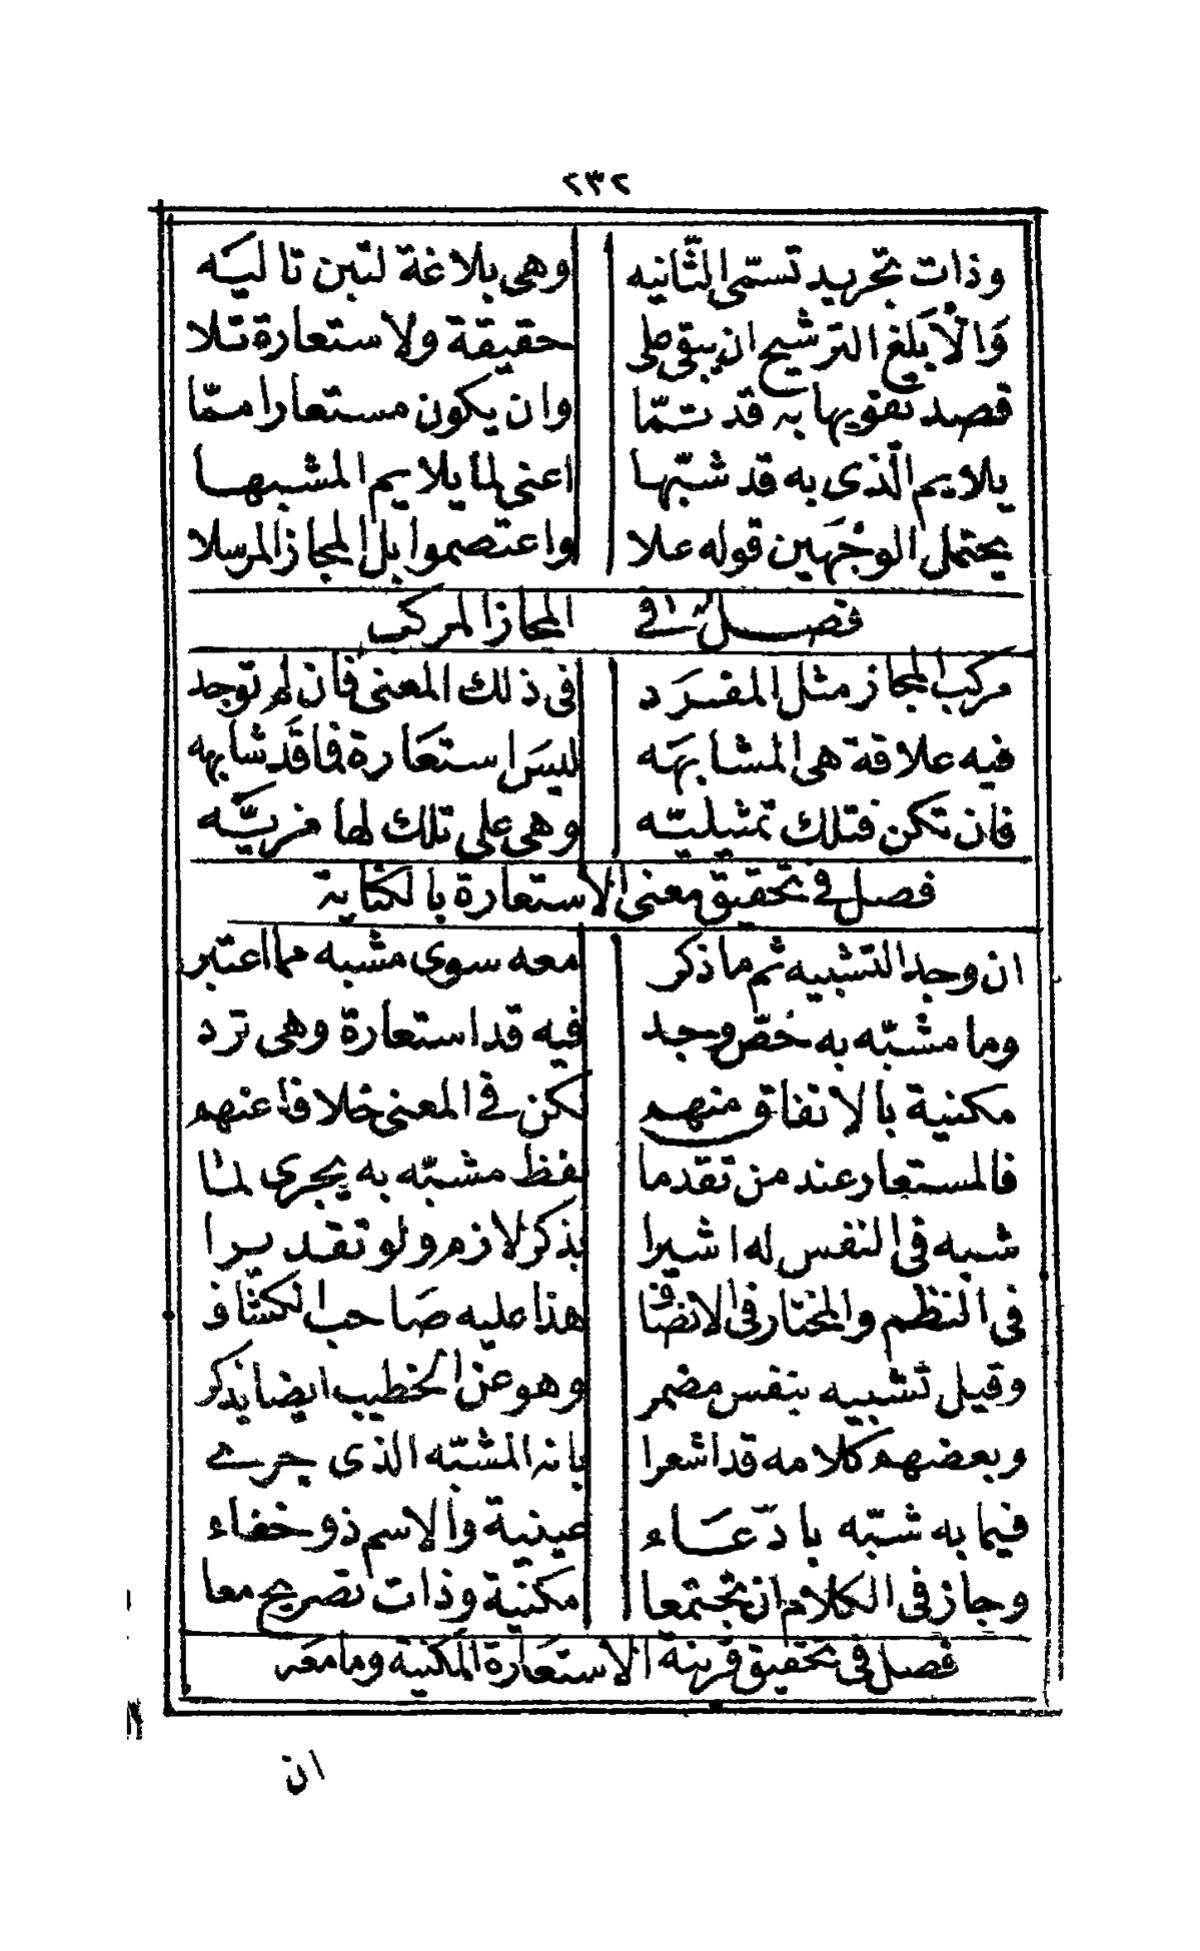 ٢٣٢
وذات تجريد تسمّى الثّانيه وهى بلاغة لتين تاليَه
وَالْابلغ الترشيح ان يبقى على حقيقة ولاستعارة تلا
قصد تقويها به قد تمّا وان يكون مستعارا ممّا
يلايم الّذى به قد شبّها اعنى لما يلايم المشبها
يحتمل الوجْهَين قوله علا واعتصموا بل المجاز المرسلا
فصل فى المجاز المركب
مركب المجاز مثل المفرَد فى ذلك المعنى فان لم توجد
فيه علاقة هى المشابهَه ليسَ استعَارة فاقَد شابهه
فان تكن فتلك تمثيليّه وهى على تلك لها مزيَّه
فصل فى تحقيق معنى الاستعارة بالكناية
ان وجد التشبيه ثم ما ذكر معه سوى مشبه مما اعتبر
وما مشبّه به خصّ وجد فيه قد استعارة وهى ترد
مكنية بالاتفاق منهم لكن فى المعنى خلافا عنهم
فالمستعار عند من تقدما لفظ مشبّه به يجرى لما
شبه فى النفس له اشيرا بذكر لازم ولو تقديرا
فى النظم والمختار فى الانصاف هذا عليه صَاحب الكشّاف
وقيل تشبيه بنفس مضمر وهو عن الخطيب ايضا يذكر
وبعضهم كلامه قد اشعرا بانه المشبّه الذى جرى
فيما به شبّه بادّعَاء عينية والاسم ذو خفاء
وجاز فى الكلام ان تجتمعا مكنيّة وذات تصريح معا
فصل فى تحقيق قرينة الاستعَارة المَكنية وما معَه
ان